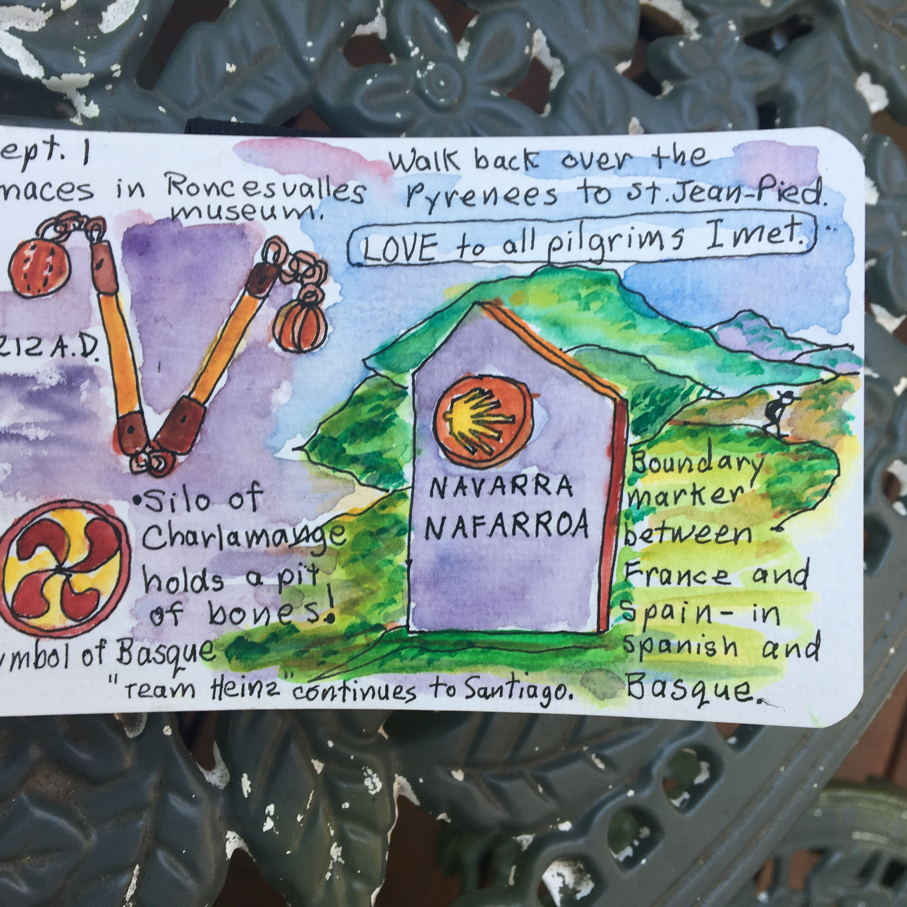 ept. 1
maces in Roncesvalles
museum.
212 A.D.
•Silo of
Charlamange
holds a pit
of bones!
ymbol of Basque
"Team Heinz" continues to Santiago.
Walk back over the
Pyrenees to St. Jean-Pied.
LOVE to all pilgrims I met.
NAVARRA
NAFARROA
Boundary
marker
between
France and
Spain- in
Spanish and
Basque.